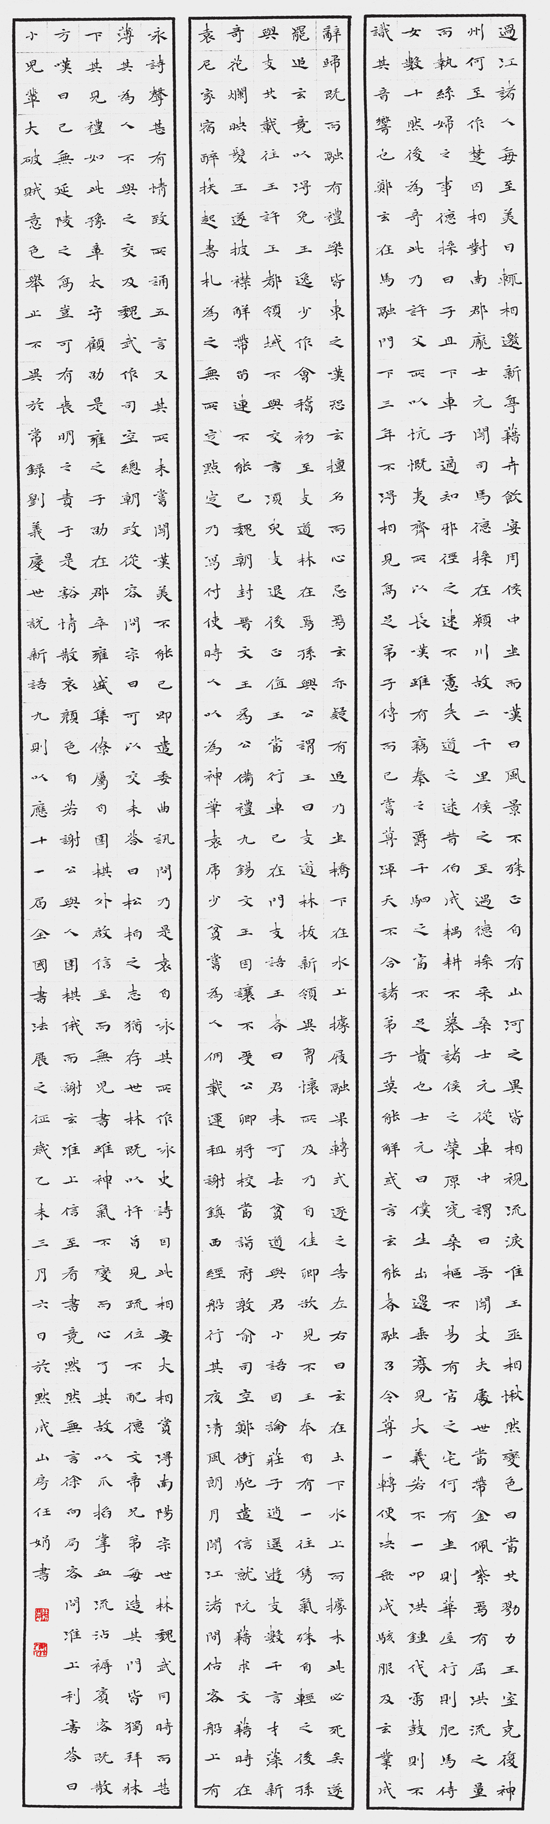 過江諸人每至美日輒相邀新亭藉卉飲宴周侯中坐而嘆曰風景不殊正自有山河之異皆相視流淚唯王丞相愀然變色曰當共勠力王室克復神
州何至作楚囚相對南郡龐士元聞司馬德操在穎川故二千里候之至遇德操采桑士元從車中謂曰吾聞丈夫處世當帶金佩紫焉有屈洪流之量
而執絲婦之事德操曰子且下車子適知邪徑之速不慮失道之迷昔伯成耦耕不慕諸侯之榮原憲桑樞不易有官之宅何有坐則華屋行則肥馬侍
女數十然後為奇此乃許父所以忼慨夷齊所以長嘆雖有竊秦之爵千駟之富不足貴也士元曰僕生出邊垂寡見大義若不一叩洪鍾伐雷鼓則不
識其音響也鄭玄在馬融門下三年不得相見高足弟子傳而已嘗算渾天不合諸弟子莫能解或言玄能者融召令算一轉便決眾咸駭服及玄業成
辭歸既而融有禮樂皆東之嘆恐玄擅名而心忌焉玄亦疑有追乃坐橋下在水上據屐融果轉式逐之告左右曰玄在土下水上而據木此必死矣遂
罷追玄竟以得免王逸少作會稽初至支道林在焉孫興公謂王曰支道林拔新領異胷懷所及乃自佳卿欲見不王本自有一往雋氣殊自輕之後孫
與支共載往王許王都領域不與交言須臾支退後正值王當行車已在門支語王各曰君未可去貧道與君小語因論莊子逍遙遊支數千言才藻新
奇花爛映發王遂披襟解帶留連不能已魏朝封晉文王為公備禮九錫文王固讓不受公卿將校當詣府敦喻司空鄭沖馳遣信就阮籍求文籍時在
袁尼家宿醉扶起書札為之無所定點定乃寫付使時人以為神筆袁虎少貧嘗為人傭載運租謝鎮西經船行其夜清風朗月聞江渚間估客船上有
詠詩聲甚有情致所誦五言又其所未嘗聞嘆美不能已即遣委曲訊問乃是袁自詠其所作詠史詩因此相要大相賞得南陽宗世林魏武同時而甚
薄其為人不與之交及魏武作司空總朝政從容問宗曰可以交未答曰松柏之志猶存世林既以忤旨見疏位不配德文帝兄弟每造其門皆獨拜牀
下其見禮如此豫章太守顧劭是雍之子劭在郡卒雍盛集僚屬自圍棋外啟信至而無兒書雖神氣不變而心了其故以爪掐掌血流沾褥賓客既散
方嘆曰已無延陵之高豈可有喪明之責于是豁情散哀顏色自若謝公與人圍棋俄而謝玄淮上信至看書竟默然無言徐向局客問淮上利害答曰
小兒輩大破賊意色舉止不異於常錄劉義慶世說新語九則以應十一屆全國書法展之征歲乙未三月六日於默成山房任娟書